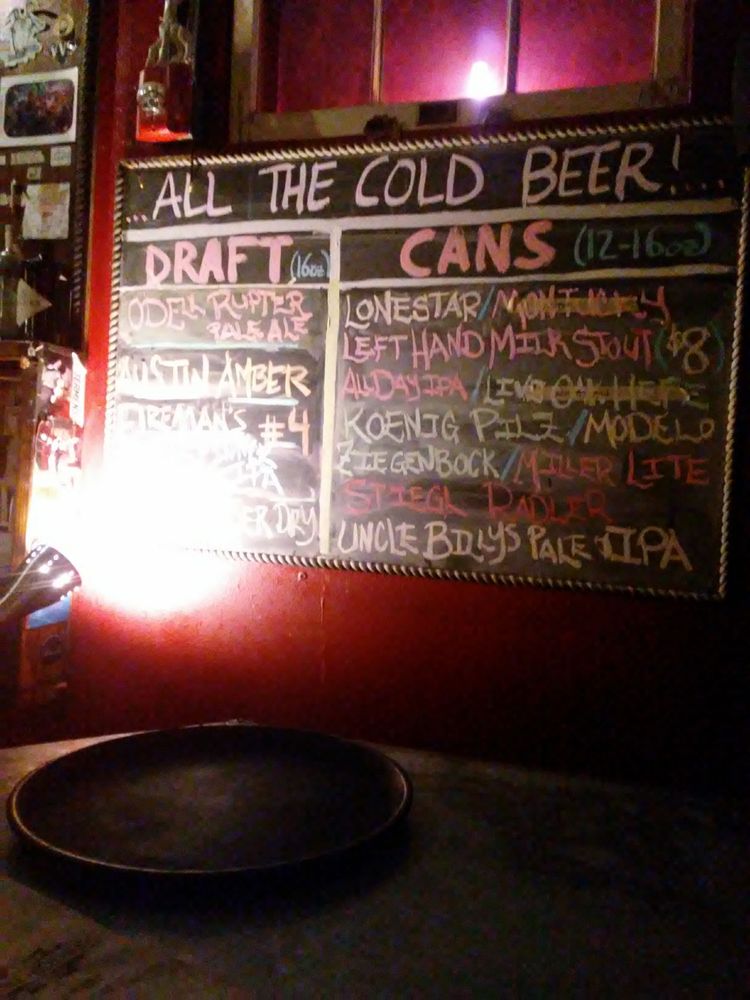 ..ALL THE COLD BEER!....
DRAFT (16oz)
ODELL RUPTER
PALE ALE
AUSTIN AMBER
FIREMAN'S #4
IPA
DRY
CANS (12-16oz)
LONESTAR/MONTUCKY
LEFT HAND MILK STOUT ($8)
ALL DAY IPA/LIVE OAK HEFE
KOENIG PILZ/MODELO
ZIEGENBOCK/MILLER LITE
STIEGL RADLER
UNCLE BILLYS PALE IPA